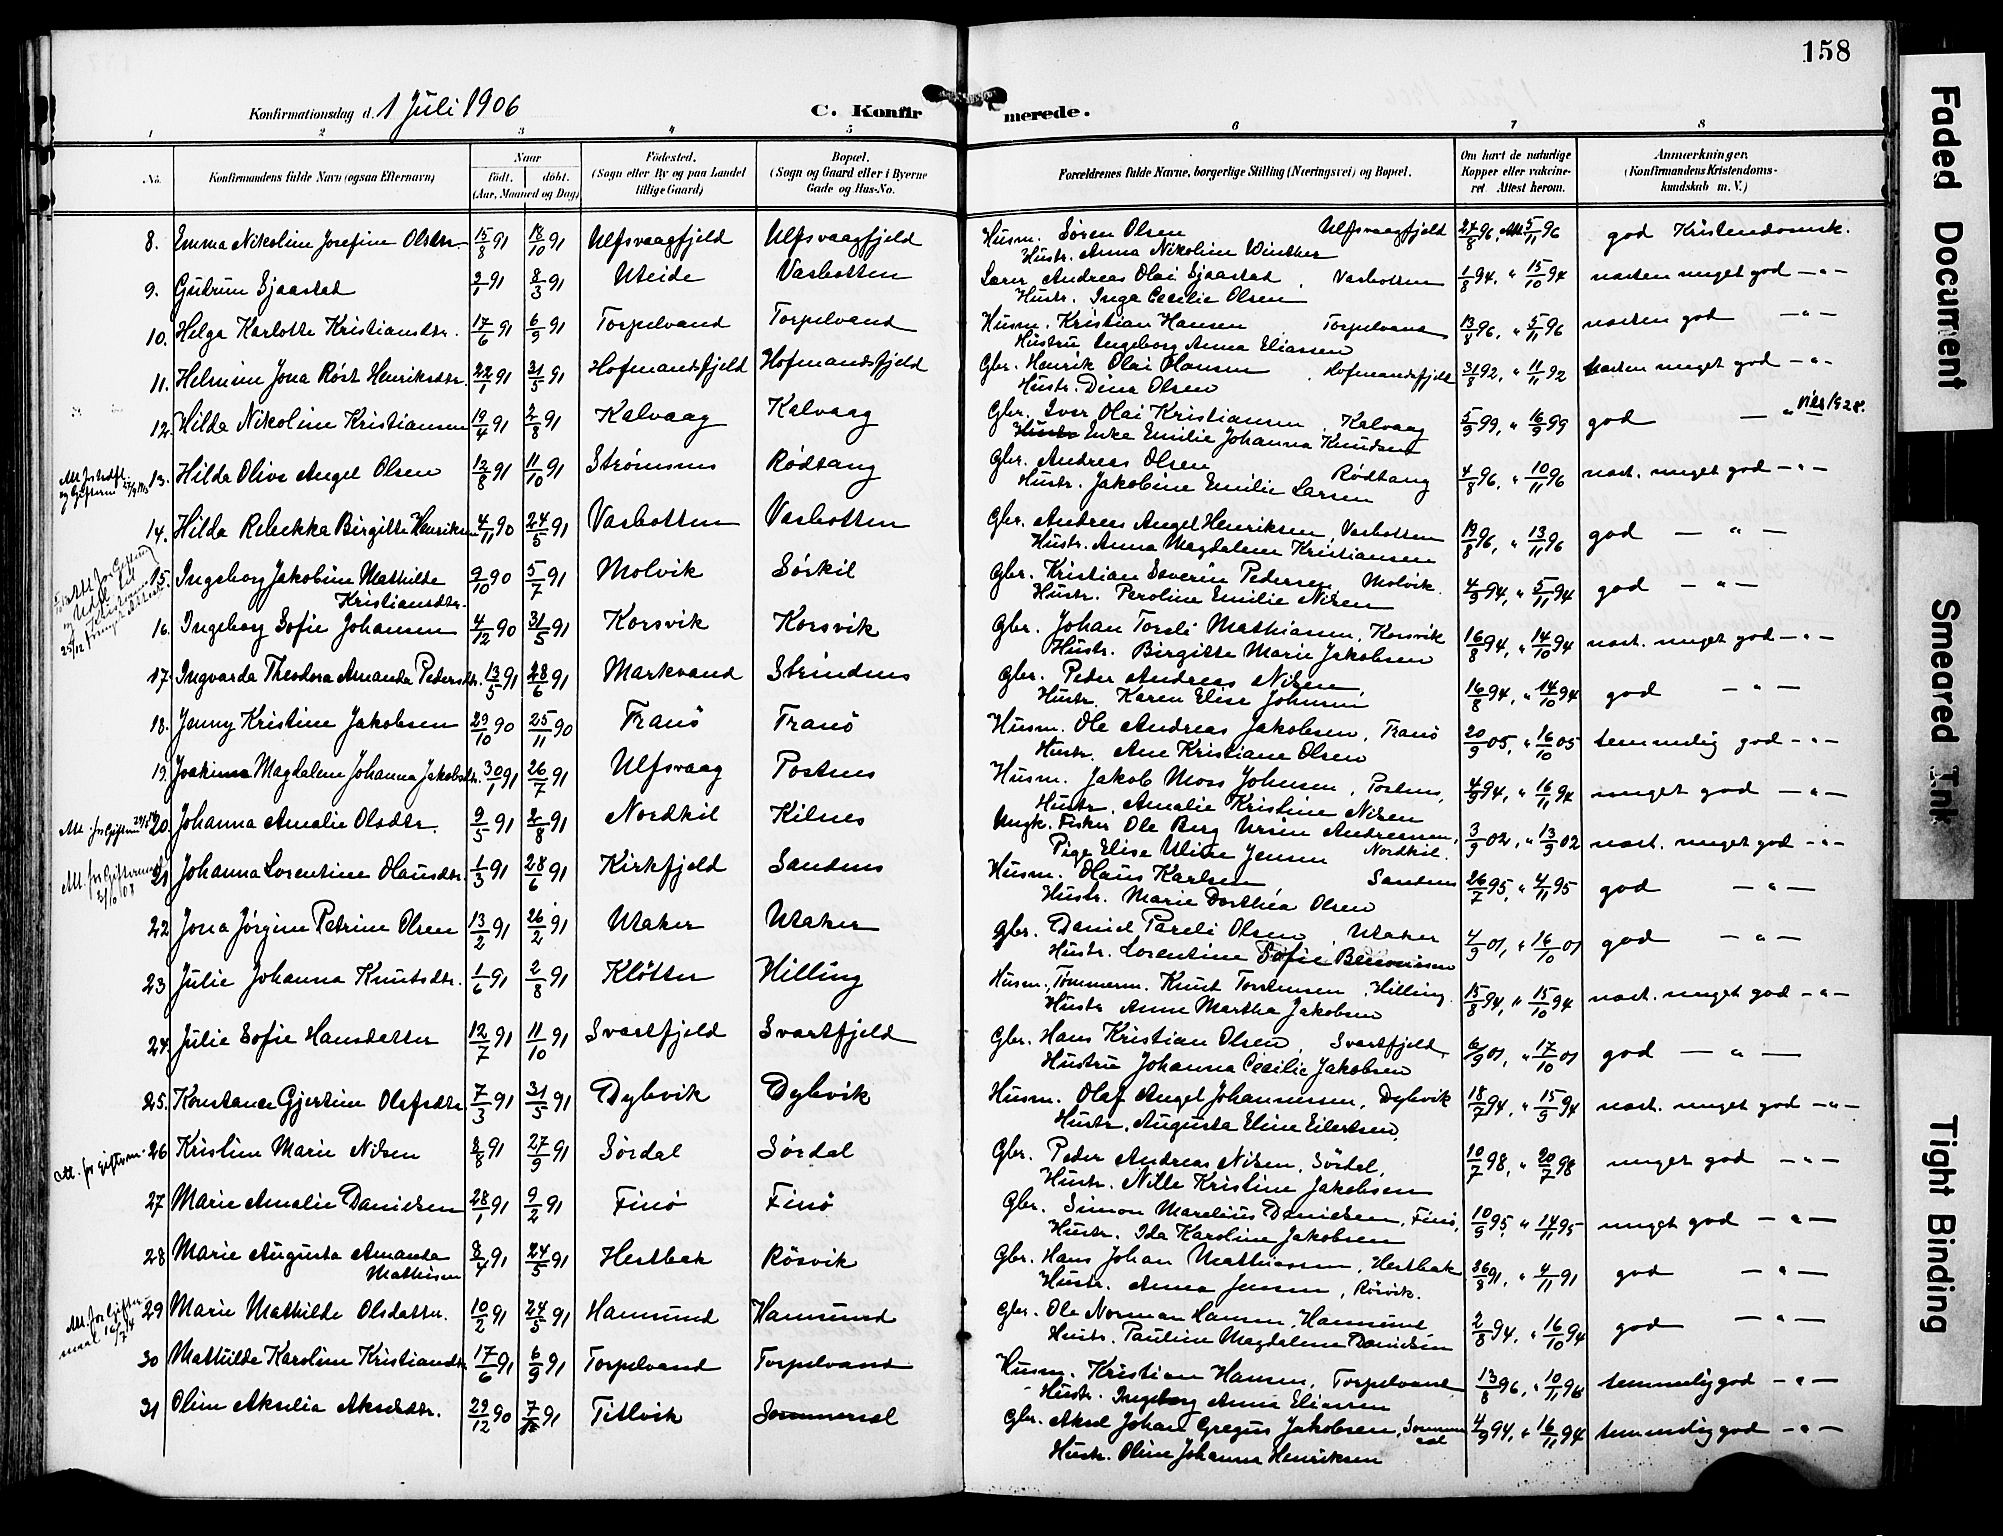 158
Konfirmationsdag d. 1 Juli 1906
C. Konfirmerede.
1 2 3 4 5 6 7 8
No. Konfirmandens fulde Navn (ogsaa Efternavn) Naar født. døbt. (Aar, Maaned og Dag) Fødested. (Sogn eller By og paa Landet tillige Gaard) Bopæl. (Sogn og Gaard eller i Byerne Gade og Hus-No. Forældrenes fulde Navne, borgerlige Stilling (Næringsvei) og Bopæl. Om havt de naturlige Kopper eller vakcineret Attest herom. Anmærkninger. (Konfirmandens Kristendomskundskab m. V.)
8. Emma Nikoline Josefine Olsdtr. 15/8 91 18/10 91 Ulfsvaagfjeld Ulfsvaagfjeld Husm. Søren Olsen Ulfsvaagfjeld 27/8 96, Att. 5/11 96 god Kristendomsk.
Hustr. Anna Nikoline Winther
9. Gudrun Sjaastad 2/1 91 8/3 91 Uteide Vasbotten Lærer Andreas Olai Sjaastad, Vasbotten 1/8 94, " 15/10 94 næsten meget god — " —
Hustr. Inga Cecilie Olsen
10. Helga Karlotte Kristiansdtr. 17/6 91 6/9 91 Torpelvand Torpelvand Husm. Kristian Hansen Torpelvand 13/8 96, " 5/11 96 næsten god — " —
Hustru Ingeborg Anna Eliassen
11. Helmine Jona Røst Henriksdtr. 22/1 91 31/5 91 Hofmandsfjeld Hofmandsfjeld Gbr. Henrik Olai Hansen, Hofmandsfjeld 31/8 92, " 11/11 92 næsten meget god — " —
Hustr. Dina Olsen
12. Hilda Nikoline Kristiansen 19/4 91 2/8 91 Kalvaag Kalvaag Gbr. Iver Olai Kristiansen, Kalvaag 5/9 99, " 16/9 99 god — " 1928.
Enke Emilie Johanna Knudsen
13. Hilda Oliva Angel Olsen 12/8 91 11/10 91 Strømsnes Rødtang Gbr. Andreas Olsen Rødtang 4/8 96, " 10/11 96 næst. meget god — " —
Hustr. Jakobine Emilie Larsen
14. Hilda Rebekka Birgitte Henriksen 4/11 90 24/5 91 Vasbotten Vasbotten Gbr. Andreas Angel Henriksen, Vasbotten 19/8 96, " 13/11 96 god — " —
Hustr. Anna Magdalena Kristiansen
15. Ingeborg Jakobine Mathilde Kristiansdtr. 9/10 90 5/7 91 Molvik Sørkil Gbr. Kristian Severin Pedersen Molvik. 4/9 94, " 5/11 94 god — " —
Hustr. Peroline Emilie Nilsen
16. Ingeborg Sofie Johansen 4/12 90 31/5 91 Korsvik Korsvik Gbr. Johan Toreli Mathiasen, Korsvik 16/8 94, " 14/10 94 næst. meget god — " —
Hustr. Birgitte Marie Jakobsen
17. Ingvarda Theodora Amanda Pedersdtr. 13/5 91 28/6 91 Markvand Strindnes Gbr. Peder Andreas Nilsen, 16/8 94, " 14/10 94 god — " —
Hustr. Karen Elise Johnsen
18. Jenny Kristine Jakobsen 29/10 90 25/11 90 Tranø Tranø Husm. Ole Andreas Jakobsen, Tranø 20/9 05, " 16/10 05 temmelig god — " —
Hustr. Ane Kristiane Olsen
19. Joakima Magdalena Johanna Jakobsdtr. 30/1 91 26/7 91 Ulfsvaag Postnes Husm. Jakob Moss Johnsen, Postnes, 4/9 94, " 16/11 94 meget god — " —
Hustr. Amalie Kristine Nilsen
20. Johanna Amalie Olsdtr. 9/5 91 2/8 91 Nordkil Kilnes Ungk. Fisker Ole Berg Ursin Andreassen, 3/9 02, " 13/9 02 næst. meget god — " —
Pige Elise Uline Jensen Nordkil.
21 Johanna Lorentine Olausdtr. 1/3 91 28/6 91 Kirkfjeld Sandnes Husm. Olaus Karlsen Sandnes 26/7 95, " 4/11 95 god — " —
Hustr. Marie Dorthea Olsen
22 Jona Jørgine Petrine Olsen 13/2 91 26/2 91 Utaker Utaker Gbr. Daniel Pareli Olsen, Utaker 4/9 01, " 16/10 01 god — " —
Hustr. Lorentine Sofie
23 Julie Johanna Knutsdtr. 1/6 91 2/8 91 Kløtter Hilling Husm., Tømmerm. Knut Torstensen, Hilling. 15/8 94, " 15/10 94 næst. meget god — " —
Hustr. Anne Martha Jakobsen
24. Julie Sofie Hansdatter 12/7 91 11/10 91 Svartfjeld Svartfjeld Gbr. Hans Kristian Olsen, Svartfjeld, 6/9 01, " 17/10 01 god — " —
Hustru Johanna Cecilie Jakobsen
25. Konstance Gjertine Olafsdtr. 7/3 91 31/5 91 Dybvik Dybvik Husm. Olaf Angel Johannessen, Dybvik 18/7 94, " 15/9 94 næst. meget god — " —
Hustr. Augusta Eline Eilertsen.
26 Kristine Marie Nilsen 8/8 91 27/9 91 Sørdal Sørdal Gbr. Peder Andreas Nilsen, Sørdal, 10/7 98, " 20/7 98 meget god — " —
Hustr. Nille Kristine Jakobsen
27 Marie Amalie Danielsen 28/1 91 9/2 91 Finø Finø Gbr. Simon Marelius Danielsen, Finø, 10/9 95, " 14/11 95 meget god — " —
Hustr. Ida Karoline Jakobsen
28 Marie Augusta Amanda Mathisen 8/4 91 24/5 91 Hestbak Røsvik Gbr. Hans Johan Mathiassen, Hestbak, 26/8 91, " 4/11 91 god — " —
Hustr. Anna Jensen, Røsvik.
29 Marie Mathilde Olsdatter. 10/2 91 24/5 91 Hamsund Hamsund Gbr. Ole Norman Hansen, Hamsund 2/8 94, " 16/10 94 god — " —
Hustr. Pauline Magdalena Danielsen
30 Mathilde Karoline Kristiansdtr. 17/6 91 6/9 91 Torpelvand Torpelvand Husm. Kristian Hansen, Torpelvand 13/8 96, " 10/11 96 temmelig god — " —
Hustr. Ingeborg Anna Eliassen
31 Oline Akselia Akselsdtr. 29/12 90 91 Titlvik Sommersel Gbr. Aksel Johan Gregus Jakobsen, Sommersel 4/9 94, " 16/11 94 temmelig god — " —
Hustr. Oline Johanna Henriksen
Att. for Giftermaal
Faded Document
Smeared Ink
Tight Binding